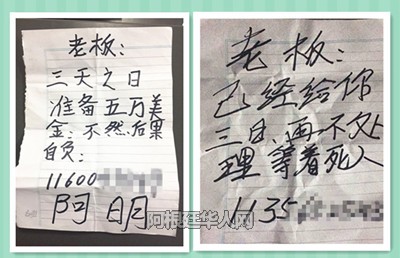 老板：
三天之日
准备五万美
金：不然后果
自负：
11600
阿明
老板：
已经给你
三日，再不处
理，等着死人
1135
阿根廷华人网